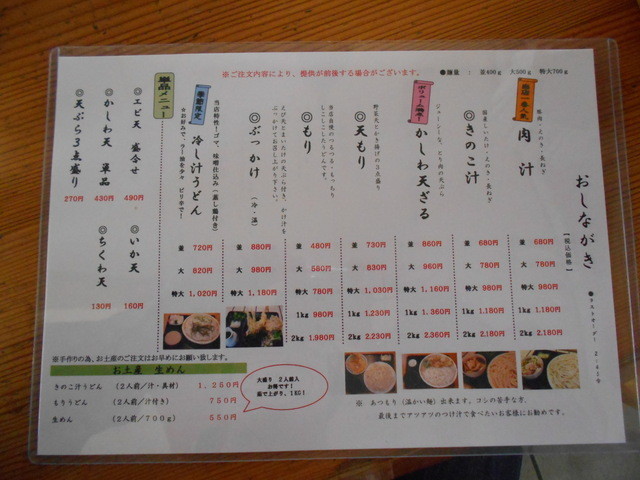 ※ご注文内容により、提供が前後する場合がございます。
●麺量： 並400g 大500g 特大700g
おしながき
【税込価格】
●ラストオーダー 2:40
当店一番人気
肉汁
豚肉・えのき・長ねぎ
並 680円
大 780円
特大 980円
1kg 1,180円
2kg 2,180円
◎きのこ汁
しいたけ・えのき・長ねぎ
並 680円
大 780円
特大 980円
1kg 1,180円
2kg 2,180円
ボリューム満点!
かしわ天ざる
ジューシーな、とり肉の天ぷら
並 860円
大 960円
特大 1,160円
1kg 1,360円
2kg 2,360円
◎天もり
野菜天とかき揚げの3点盛り
並 730円
大 830円
特大 1,030円
1kg 1,230円
2kg 2,230円
◎もり
当店自慢のつるつる・もっちり
しこしこしたうどんです。
並 480円
大 580円
特大 780円
1kg 980円
2kg 1,980円
◎ぶっかけ (冷・温)
えび天とまいたけの天ぷら付き、かけ汁を
ぶっかけてお召し上がり下さい。
並 880円
大 980円
特大 1,180円
季節限定
冷し汁うどん
当店特性!ゴマ、味噌仕込み(蒸し鶏付き)
※お好みで、ラー油を少々 ピリ辛で!
並 720円
大 820円
特大 1,020円
単品メニュー
◎エビ天 盛合せ
490円
◎いか天
160円
◎かしわ天 単品
430円
◎ちくわ天
130円
◎天ぷら3点盛り
270円
※手作りの為、お土産のご注文はお早めにお願い致します。
お土産 生めん
きのこ汁うどん (2人前/汁・具材) 1,250円
もりうどん (2人前/汁付き) 750円
生めん (2人前/700g) 550円
大盛り 2人前入
お得です!
茹で上がり、1KG!
※ あつもり (温かい麺) 出来ます。コシの苦手な方、
最後までアツアツのつけ汁で食べたいお客様にお勧めです。